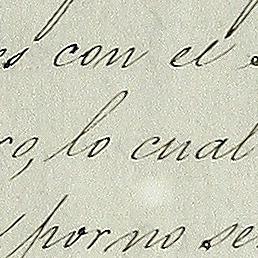 es con el
ro, lo cual
por no se